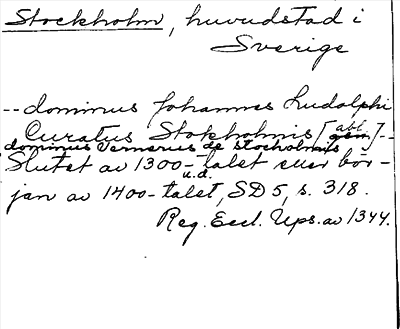 Stockholm, huvudstad i
Sverige
-- dominus Johannes Ludolphi
Curatus Stokholmis [abl.] --
dominus Vernerus de stocholmis
Slutet av 1300-talet eller bör-
jan av 1400-talet, SD 5, s. 318.
u.d.
Reg. Eccl. Ups. av 1344.